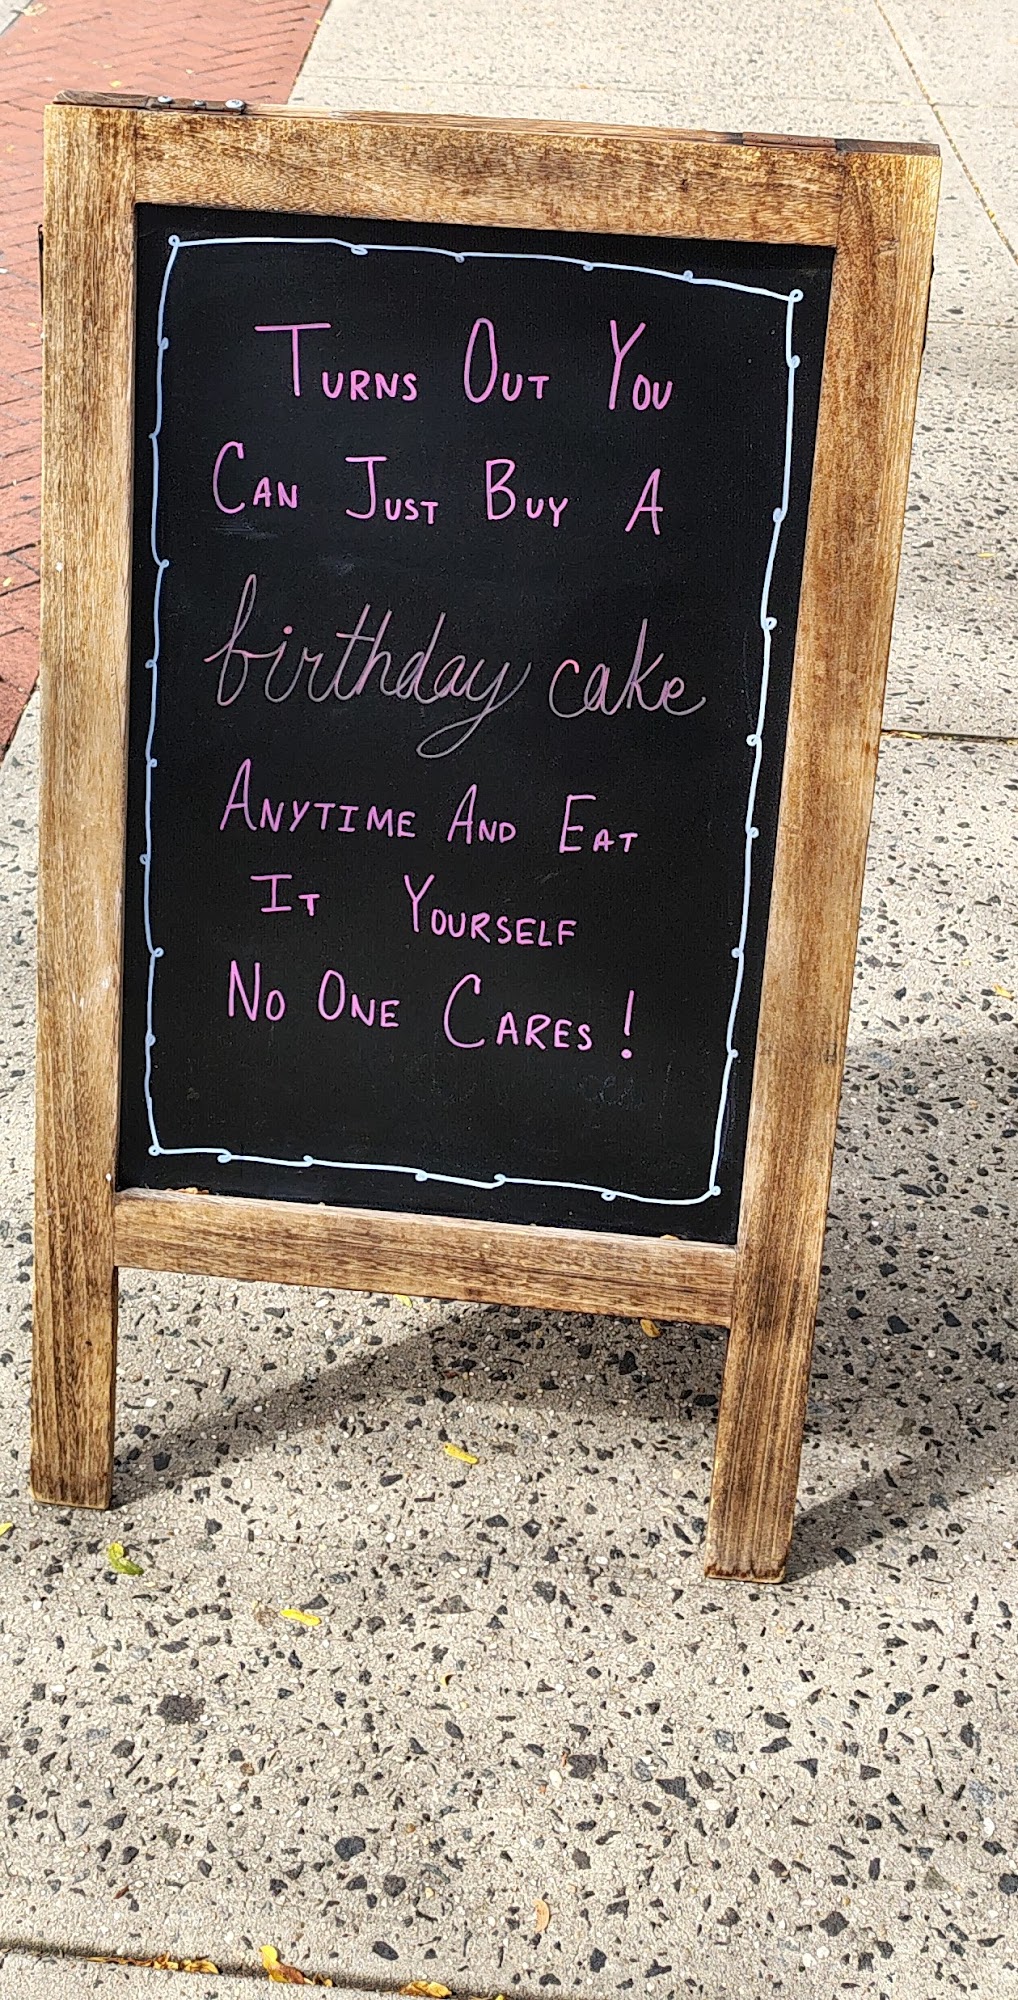 Turns Out You
Can Just Buy A
birthday cake
Anytime And Eat
It Yourself
No One Cares!